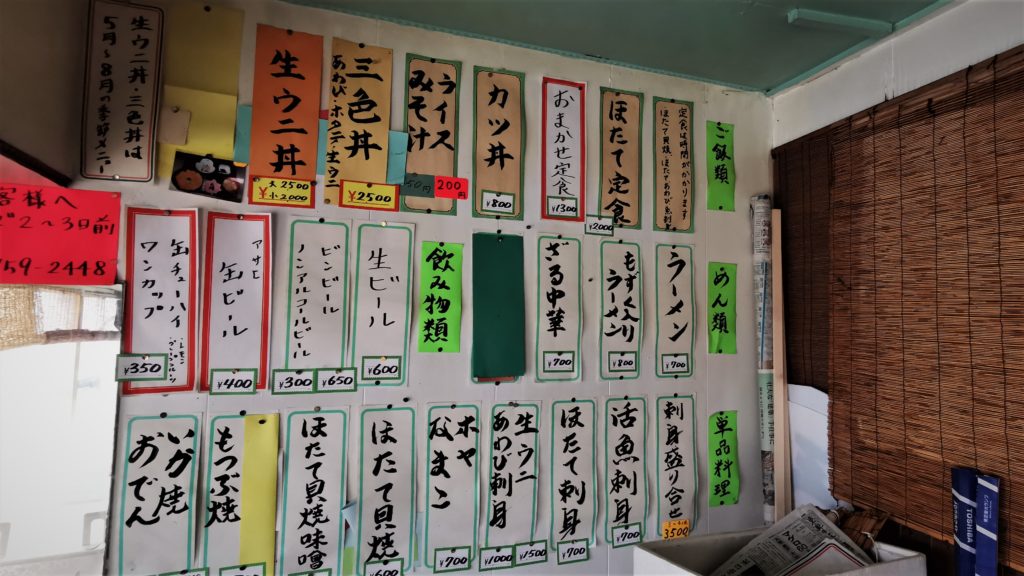 ご飯類
定食は時間がかります
ほたて貝焼、ほたてあわび魚刺
ほたて定食
¥2000
おまかせ定食
¥1300
カツ丼
¥800
ライス
みそ汁
200円
三色丼
あわび・ホタテ・生ウニ
¥2500
生ウニ丼
大 2500
¥小2,000
生ウニ丼・三色丼は
5月〜8月の季節メニュー
めん類
ラーメン
¥700
もずく入り
ラーメン
¥800
ざる中華
¥700
飲み物類
生ビール
¥600
ビンビール
ノンアルコールビール
¥650
¥300
アサヒ
缶ビール
¥400
缶チューハイ
ワンカップ
¥350
客様へ
2〜3日前
59-2448
単品料理
刺身盛り合せ
3500
活魚刺身
¥700
ほたて刺身
¥700
生ウニ
あわび刺身
¥1500
¥1000
ホヤ
なまこ
¥700
ほたて貝焼
¥600
ほたて貝焼味噌
もつぶ焼
いか焼
おでん
TOSHIBA